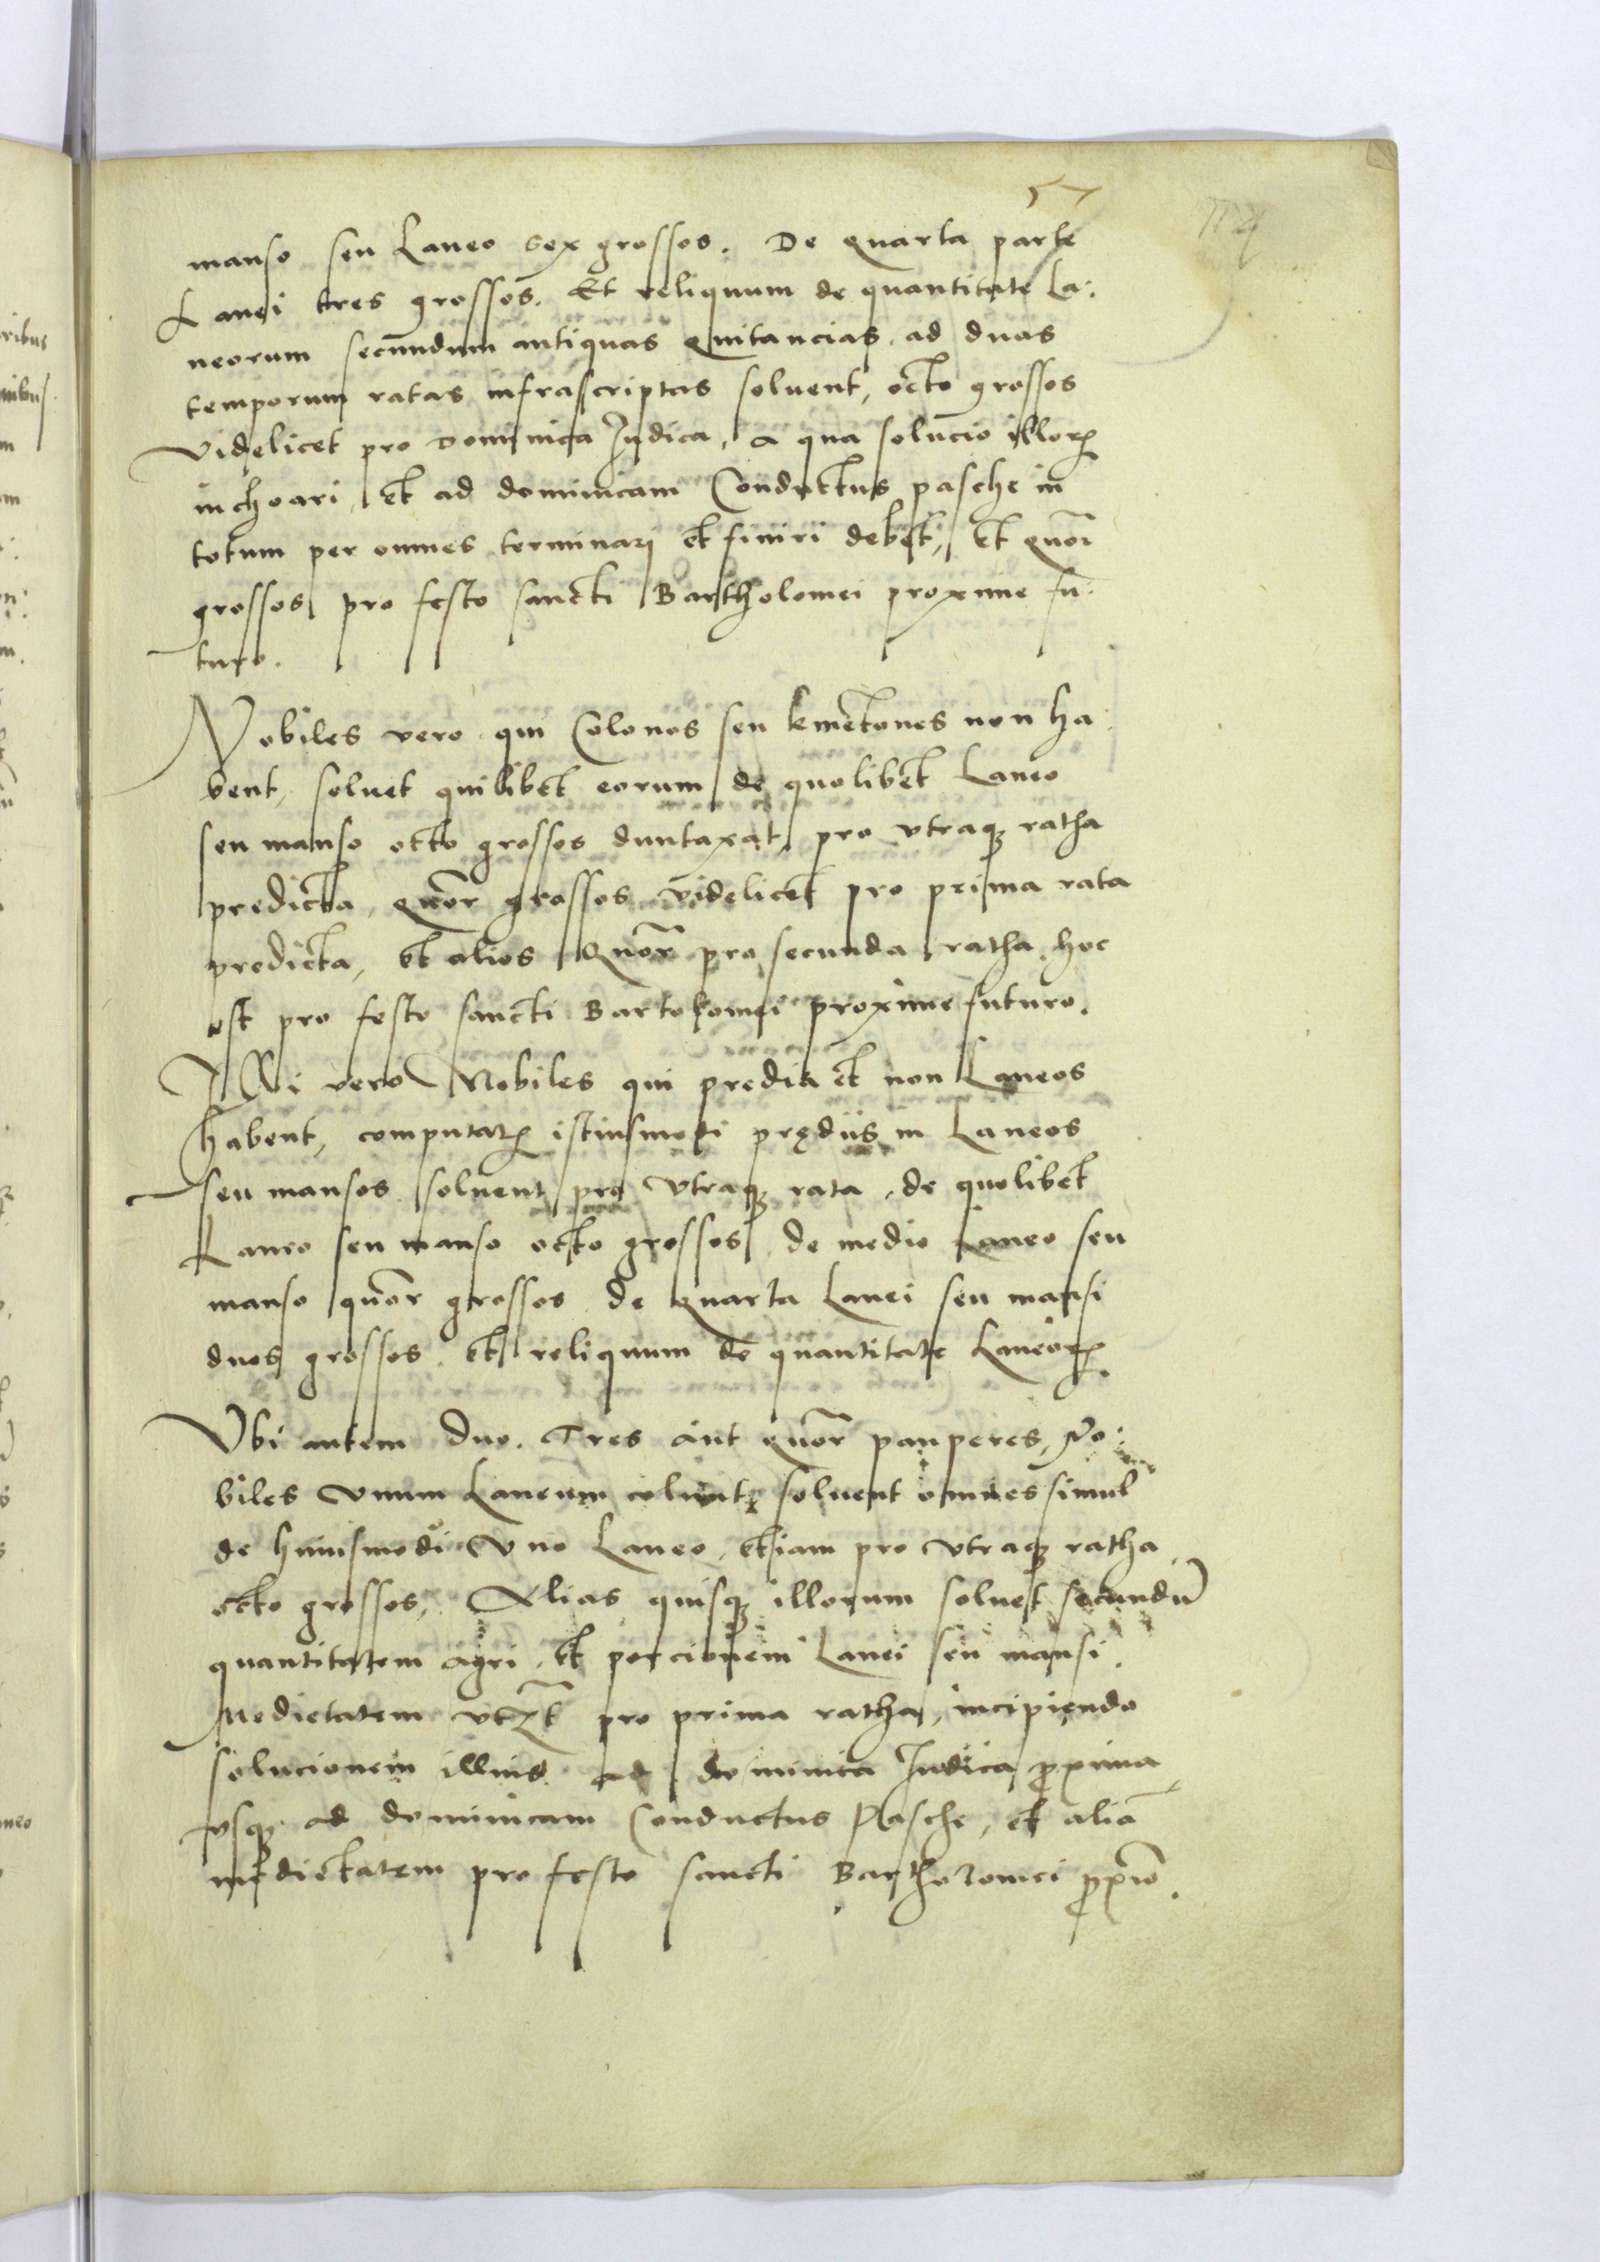 57
manso seu Laneo sex grossos. De quarta parte
Lanei tres grossos. Et reliquum de quantitate La:
neorum secundum antiquas quitancias ad duas
temporum ratas infrascriptas soluent, octo grossos
videlicet pro Dominica Judica, a qua solucio illorꝝ
inchoari et ad dominicam Conductus pasche in
totum per omnes terminari et finiri debet, et quōr
grossos pro festo sancti Bartholomei proxime fu:
turo.
Nobiles vero qui Colonos seu kmetones non ha
bent, soluet quilibet eorum de quolibet Laneo
seu manso octo grossos duntaxat, pro vtraqꝫ ratha
predicta, quōr grossos videlicet pro prima rata
predicta, et alios Quōr pro secunda ratha, hoc
est pro festo sancti Bartolomei proxime futuro.
Illi vero Nobiles qui predia et non Laneos
habent, computatꝭ istiusmodi prędiis in Laneos
seu mansos soluent pro vtraqꝫ rata, de quolibet
Laneo seu manso octo grossos, de medio Laneo seu
manso quōr grossos de quarta Lanei seu mansi
duos grossos et reliquum de quantitate Laneorꝝ.
Vbi autem duo, Tres aut quōr pauperes, No:
biles vnum Laneum colunt, soluent omnes simul
de huiusmodi vno Laneo, etiam pro vtraqꝫ ratha
octo grossos, Alias quisqꝫ illorum soluet secundū
quantitatem agri, et porcionem Lanei seu mansi.
Medietatem vtpōt pro prima ratha, incipiendo
solucionem illius ad dominica Judica p̄xima
vsqꝫ ad dominicam Conductus Pasche, et aliā
medietatem pro festo sancti Bartholomei p̄xīo.